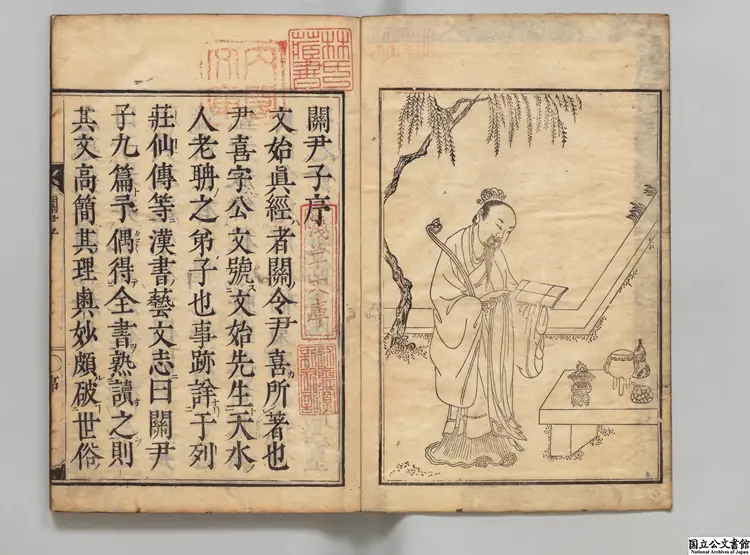 關尹子序
文始眞經者關令尹喜所著也
尹喜字公文號文始先生天水
人老聃之弟子也事跡詳于列
莊仙傳等漢書藝文志曰關尹
子九篇予偶得全書熟讀之則
其文高簡其理奥妙頗破世俗
關尹子
林氏
藏書
淺草文庫
国立公文書館
National Archives of Japan